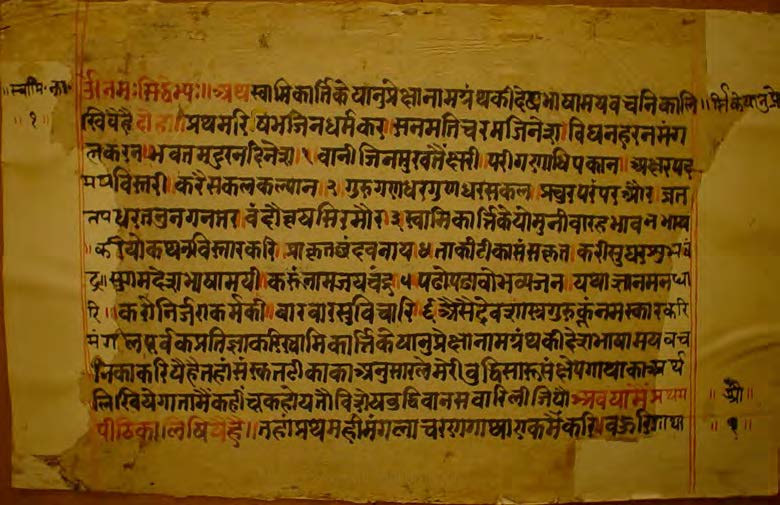 ॐनमःसिद्धेभ्यः॥अथस्वामिकार्तिकेयानुप्रेक्षानामग्रंथकीदेशभाषामयवचनिकालि
खियेहै दोहा प्रथमरिषभजिनधर्मकर सनमतिचरमजिनेश विघनहरनमंग
लकरन भवतमदुरनदिनेश १ वानीजिनमुखतैंखरी परीगणाधिपकान अक्षरपद
मयविस्तरी करैसकलकल्यान २ गुरुगणधरगुणधरसकल प्रचुरपरंपरऔर व्रत
तपधरतनुनगनतर वंदौंवृषसिरमौर ३ स्वामिकार्त्तिकेयोमुनीबारहभावनभाय
कीयोकथनविस्तारकरि प्राकृतछंदवनाय ४ ताकीटीकासंसकृत करीसुधरशुभचं
द्र सुगमदेशभाषामयी करूंनामजयचंद्र ५ पढोपढावोभव्यजन यथाज्ञानमनधा
रि करोनिर्जराकर्मकी बारबारसुविचारि ६ ऐसैंदेवशास्त्रगुरुकूंनमस्कारकरि
मंगलपूर्वकप्रतिज्ञाकरिस्वामिकार्त्तिकेयानुप्रेक्षानामग्रंथकीदेशभाषामयवच
निकाकरियेहैतहांसंस्कृतटीकाकाअनुसारलेमेरीबुद्धिसारूसंक्षेपगाथाकाअर्थ
लिखियेगातामैंकहींचूकहोयतौविशेषबुद्धिवानसवारिलीजियौ
पीठिका लषियेहै॥तहांप्रथमहीमंगलाचरणगाथा
श्री
१